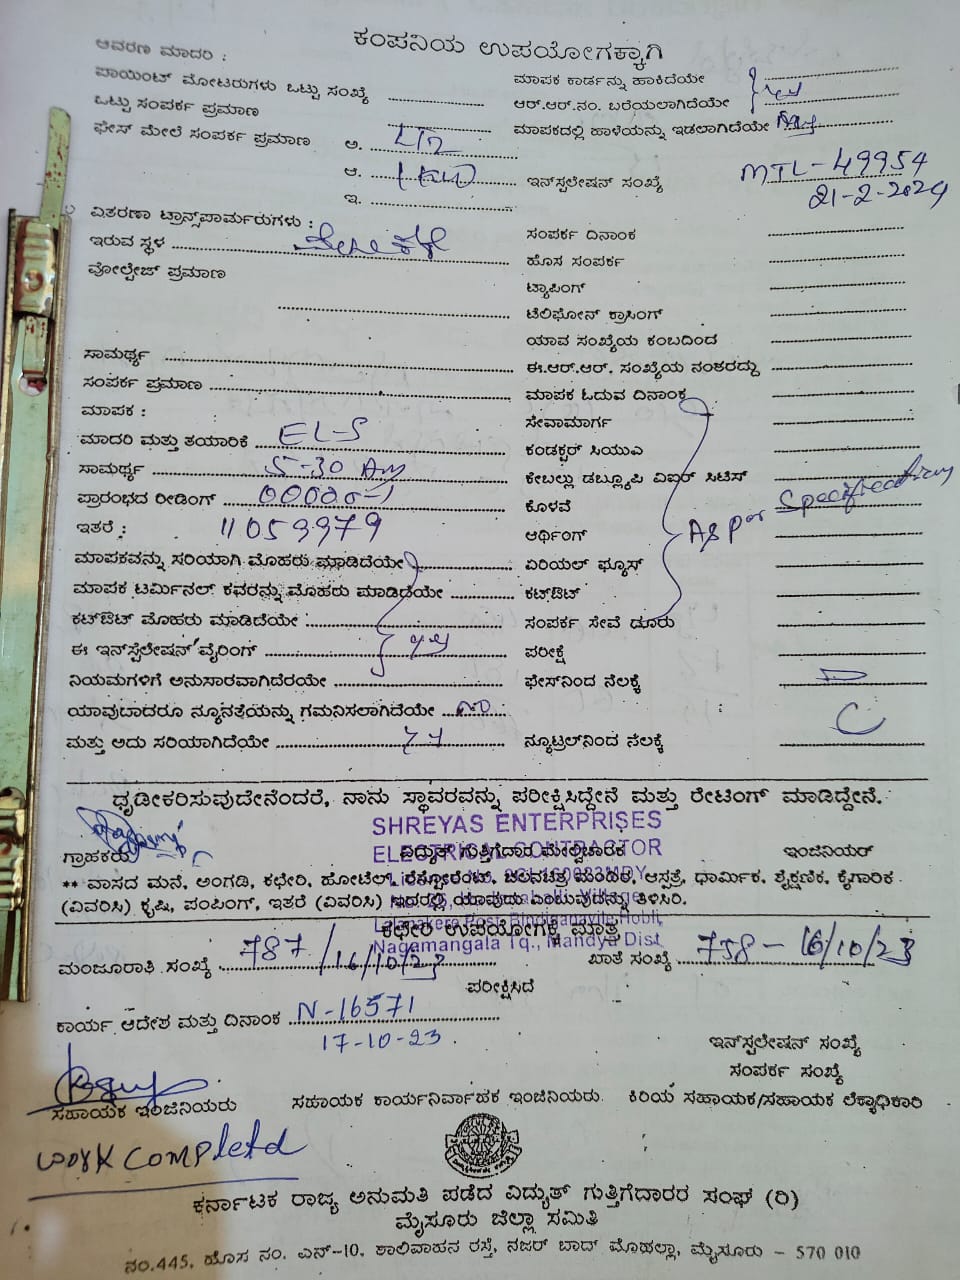 ಕಂಪನಿಯ ಉಪಯೋಗಕ್ಕಾಗಿ
ಆವರಣ ಮಾದರಿ :
ಪಾಯಿಂಟ್ ಮೋಟರುಗಳು ಒಟ್ಟು ಸಂಖ್ಯೆ
ಒಟ್ಟು ಸಂಪರ್ಕ ಪ್ರಮಾಣ
ಫೇಸ್ ಮೇಲೆ ಸಂಪರ್ಕ ಪ್ರಮಾಣ ಅ.
ಆ.
ಇ.
ವಿತರಣಾ ಟ್ರಾನ್ಸ್‌ಪಾರ್ಮರುಗಳು :
ಇರುವ ಸ್ಥಳ
ವೋಲ್ಟೇಜ್ ಪ್ರಮಾಣ
ಸಾಮರ್ಥ್ಯ
ಸಂಪರ್ಕ ಪ್ರಮಾಣ
ಮಾಪಕ :
ಮಾದರಿ ಮತ್ತು ತಯಾರಿಕೆ EL-S
ಸಾಮರ್ಥ್ಯ 5-30 Am
ಪ್ರಾರಂಭದ ರೀಡಿಂಗ್
ಇತರೆ : 11053979
ಮಾಪಕವನ್ನು ಸರಿಯಾಗಿ ಮೊಹರು ಮಾಡಿದೆಯೇ
ಮಾಪಕ ಟರ್ಮಿನಲ್ ಕವರನ್ನು ಮೊಹರು ಮಾಡಿದೆಯೇ
ಕಟ್‌ಔಟ್ ಮೊಹರು ಮಾಡಿದೆಯೇ
ಈ ಇನ್‌ಸ್ಟಲೇಷನ್ ವೈರಿಂಗ್
ನಿಯಮಗಳಿಗೆ ಅನುಸಾರವಾಗಿದೆರಯೇ
ಯಾವುದಾದರೂ ನ್ಯೂನತೆಯನ್ನು ಗಮನಿಸಲಾಗಿದೆಯೇ no
ಮತ್ತು ಅದು ಸರಿಯಾಗಿದೆಯೇ
ಮಾಪಕ ಕಾರ್ಡನ್ನು ಹಾಕಿದೆಯೇ
ಆರ್.ಆರ್.ನಂ. ಬರೆಯಲಾಗಿದೆಯೇ
ಮಾಪಕದಲ್ಲಿ ಹಾಳೆಯನ್ನು ಇಡಲಾಗಿದೆಯೇ
ಇನ್‌ಸ್ಟಲೇಷನ್ ಸಂಖ್ಯೆ MTL-49954
21-2-2024
ಸಂಪರ್ಕ ದಿನಾಂಕ
ಹೊಸ ಸಂಪರ್ಕ
ಟ್ಯಾಪಿಂಗ್
ಟೆಲಿಫೋನ್ ಕ್ರಾಸಿಂಗ್
ಯಾವ ಸಂಖ್ಯೆಯ ಕಂಬದಿಂದ
ಈ.ಆರ್.ಆರ್. ಸಂಖ್ಯೆಯ ನಂತರದ್ದು
ಮಾಪಕ ಓದುವ ದಿನಾಂಕ
ಸೇವಾಮಾರ್ಗ
ಕಂಡಕ್ಟರ್ ಸಿಯುಎ
ಕೇಬಲ್ಲು ಡಬ್ಲ್ಯೂಪಿ ವಿಐರ್ ಸಿಟಿಸ್
ಕೊಳವೆ As per Specification
ಅರ್ಥಿಂಗ್
ಏರಿಯಲ್ ಫ್ಯೂಸ್
ಕಟ್‌ಔಟ್
ಸಂಪರ್ಕ ಸೇವೆ ದೂರು
ಪರೀಕ್ಷೆ
ಫೇಸ್‌ನಿಂದ ನೆಲಕ್ಕೆ
ನ್ಯೂಟ್ರಲ್‌ನಿಂದ ನೆಲಕ್ಕೆ
ಧೃಡೀಕರಿಸುವುದೇನೆಂದರೆ, ನಾನು ಸ್ಥಾವರವನ್ನು ಪರೀಕ್ಷಿಸಿದ್ದೇನೆ ಮತ್ತು ರೇಟಿಂಗ್ ಮಾಡಿದ್ದೇನೆ.
SHREYAS ENTERPRISES
ELECTRICAL CONTRACTOR
ಗ್ರಾಹಕರು ವಿದ್ಯುತ್ ಗುತ್ತಿಗೆದಾರ ಮೇಲ್ವಿಚಾರಕ ಇಂಜಿನಿಯರ್
** ವಾಸದ ಮನೆ, ಅಂಗಡಿ, ಕಛೇರಿ, ಹೋಟೆಲ್, ರೆಸ್ಟೋರೆಂಟ್, ಚಲನಚಿತ್ರ ಮಂದಿರ, ಆಸ್ಪತ್ರೆ, ಧಾರ್ಮಿಕ, ಶೈಕ್ಷಣಿಕ, ಕೈಗಾರಿಕ
(ವಿವರಿಸಿ) ಕೃಷಿ, ಪಂಪಿಂಗ್, ಇತರೆ (ವಿವರಿಸಿ) ಇದರಲ್ಲಿ ಯಾವುದು ಎಂಬುವುದನ್ನು ತಿಳಿಸಿರಿ.
ಕಛೇರಿ ಉಪಯೋಗಕ್ಕೆ ಮಾತ್ರ
Nagamangala Tq., Mandya Dist
ಮಂಜೂರಾತಿ ಸಂಖ್ಯೆ 787/16/10/23 ಖಾತೆ ಸಂಖ್ಯೆ 758-16/10/23
ಪರೀಕ್ಷಿಸಿದೆ
ಕಾರ್ಯ ಆದೇಶ ಮತ್ತು ದಿನಾಂಕ N-16571
17-10-23
ಇನ್‌ಸ್ಟಲೇಷನ್ ಸಂಖ್ಯೆ
ಸಂಪರ್ಕ ಸಂಖ್ಯೆ
ಸಹಾಯಕ ಇಂಜಿನಿಯರು ಸಹಾಯಕ ಕಾರ್ಯನಿರ್ವಾಹಕ ಇಂಜಿನಿಯರು. ಕಿರಿಯ ಸಹಾಯಕ/ಸಹಾಯಕ ಲೆಕ್ಕಾಧಿಕಾರಿ
work completed
ಕರ್ನಾಟಕ ರಾಜ್ಯ ಅನುಮತಿ ಪಡೆದ ವಿದ್ಯುತ್ ಗುತ್ತಿಗೆದಾರರ ಸಂಘ (ರಿ)
ಮೈಸೂರು ಜಿಲ್ಲಾ ಸಮಿತಿ
ನಂ.445, ಹೊಸ ನಂ. ಎನ್-10, ಶಾಲಿವಾಹನ ರಸ್ತೆ, ನಜರ್ ಬಾದ್ ಮೊಹಲ್ಲಾ, ಮೈಸೂರು - 570 010